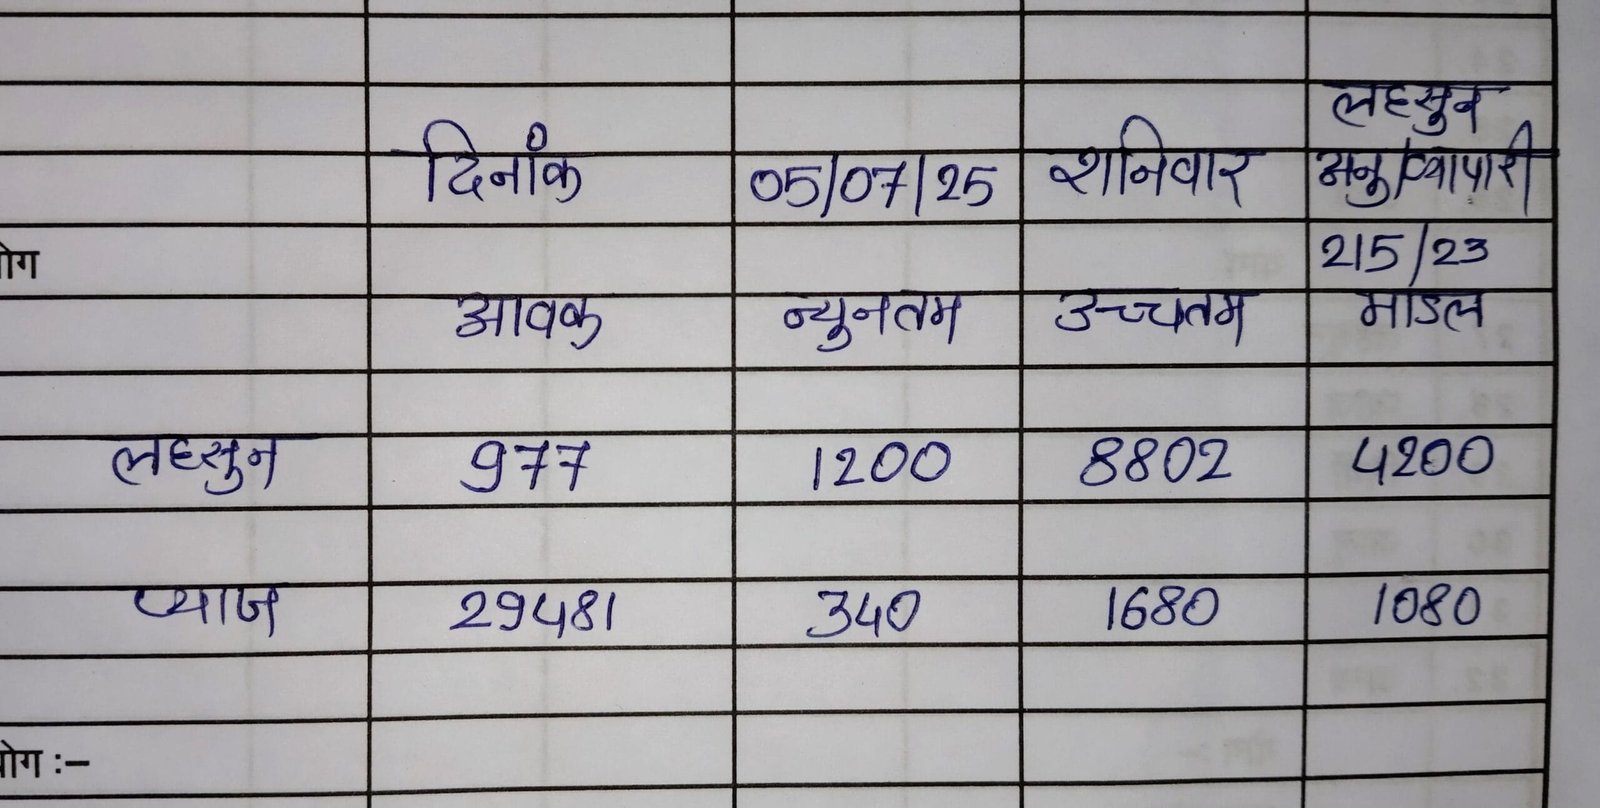 लहसुन
दिनांक 05/07/25 शनिवार अनु/व्यापारी
योग 215/23
आवक न्युनतम उच्चतम माडल
लहसुन 977 1200 8802 4200
प्याज 29481 340 1680 1080
योग :–